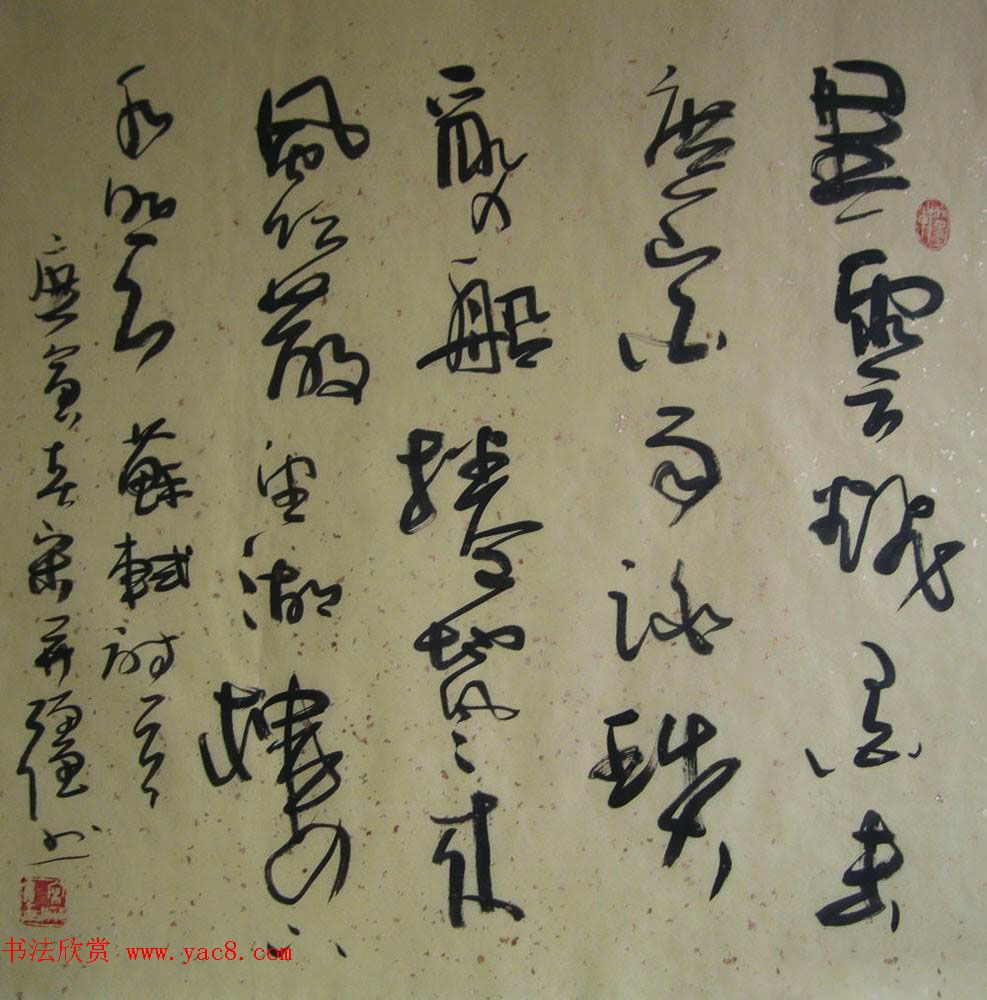 黑雲翻墨未
遮山白雨跳珠
亂入船捲地風來
風吹散望湖樓下
水如天 蘇軾詩一首
庚寅春宋并強书
书法欣赏 www.yac8.com